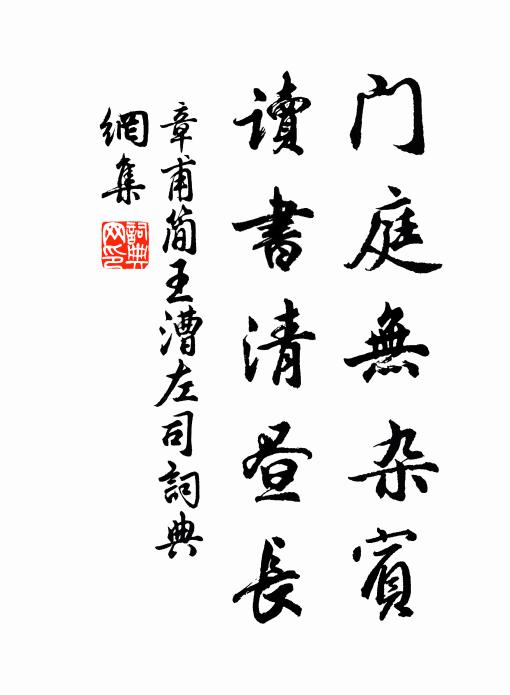 门庭無杂賓
读書清昼長
章甫简王漕左司詞典
網集
詞典
网印